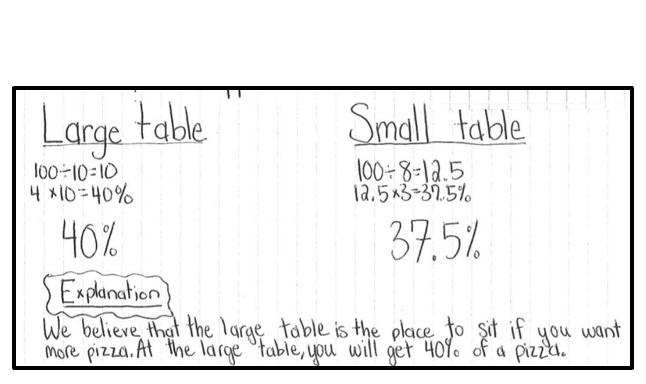 Large table
100÷10=10
4 x10=40%
40%
Small table
100÷8=12.5
12.5x3=37.5%
37.5%
Explanation
We believe that the large table is the place to sit if you want
more pizza. At the large table, you will get 40% of a pizza.